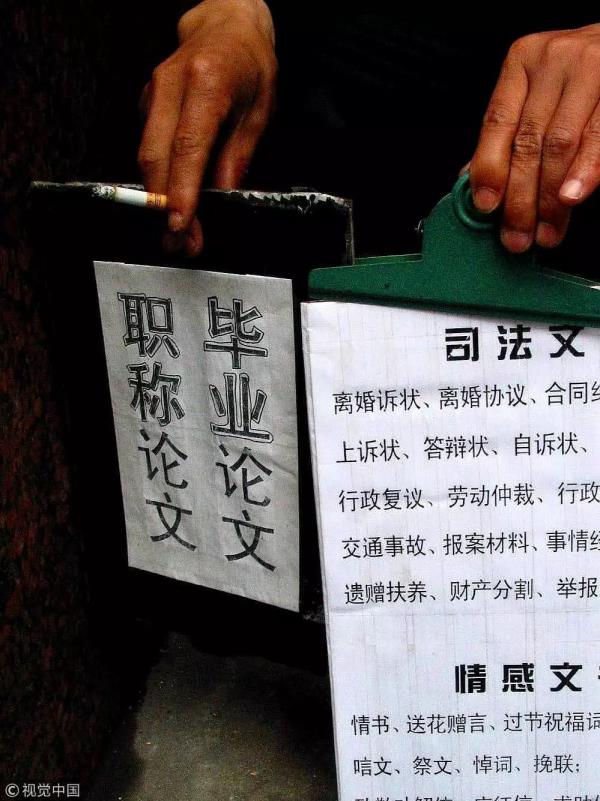 毕业论文
职称论文
司法文
离婚诉状、离婚协议、合同
上诉状、答辩状、自诉状、
行政复议、劳动仲裁、行政
交通事故、报案材料、事情
遗赠扶养、财产分割、举报
情感文
情书、送花赠言、过节祝福词
唁文、祭文、悼词、挽联；
©视觉中国